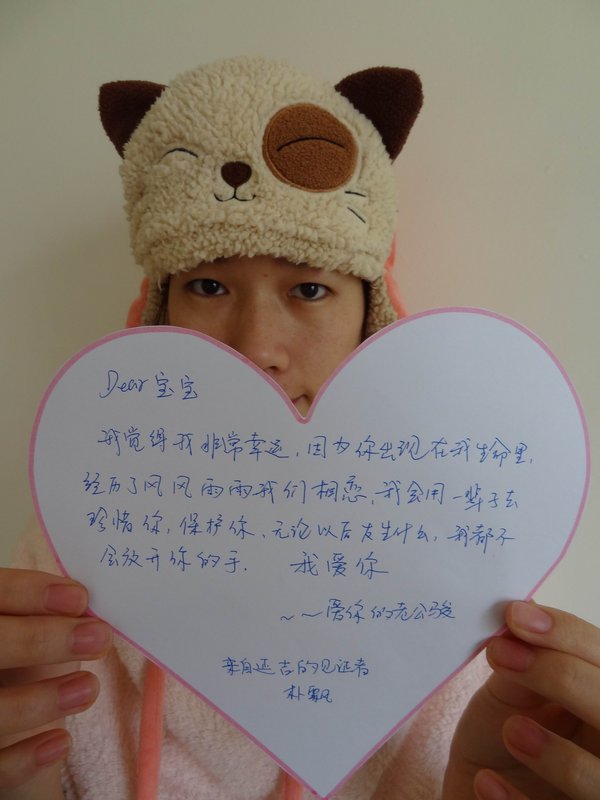 Dear 宝宝
我觉得我非常幸运，因为你出现在我生命里，
经历了风风雨雨我们相恋，我会用一辈子去
珍惜你，保护你，无论以后发生什么，我都不
会放开你的手. 我爱你
~~爱你的老公骏
来自延吉的见证者
朴飘